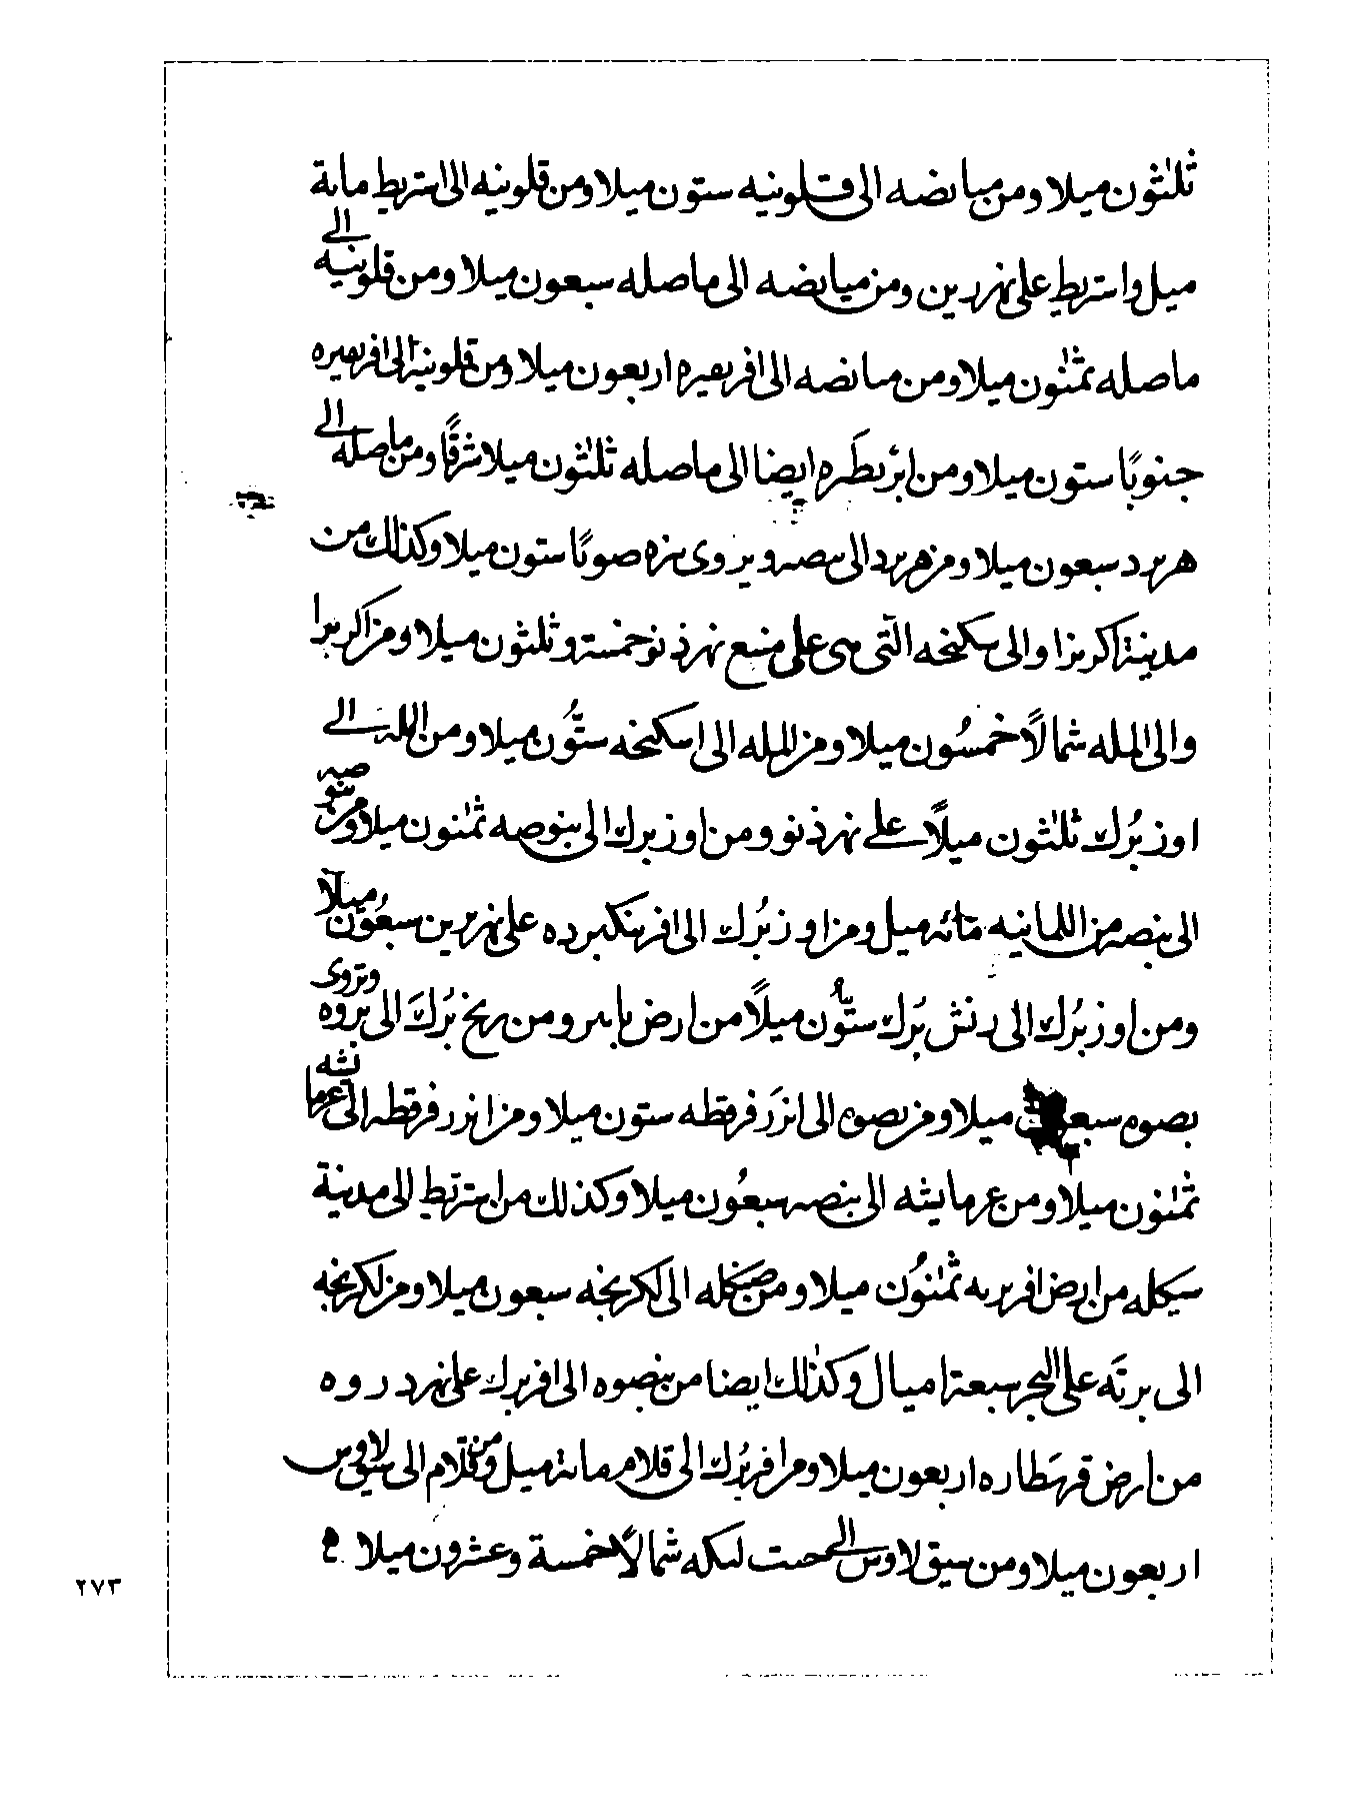 ثلثون ميلا ومن ميانضه الى قلونيه ستون ميلا ومن قلونيه الى استريط مائة
ميل واستريط على نهر دين ومن ميانضه الى ماصله سبعون ميلا ومن قلونيه الى
ماصله ثمنون ميلا ومن ميانضه الى افريميره اربعون ميلا ومن قلونية الى افريميره
جنوبًا ستون ميلا ومن ابرْبطَره ايضا الى ماصله ثلثون ميلا شرقًا ومن ماصله الى
هربرد سبعون ميلا ومن هربرد الى بيصه ويروى بزه صوبًا ستون ميلا وكذلك من
مدينة اكربزا والى سكنجه التى هى على منبع نهر ذنو خمسة وثلثون ميلا ومن اكربرا
والى المله شمالاً خمسُون ميلا ومن المله الى اسكنجه ستُّون ميلا ومن المله الى
اوزبُرك ثلثون ميلًا على نهر ذنو ومن اوزبرك الى بنوصه ثمنون ميلا ومن بنوصه
الى بنصه من اللمانيه مائه ميل ومن اوزبُرك الى افرنكبرده على نهر رين سبعُون ميلًا
ومن اوزبُرك الى رنش بُرك ستُّون ميلًا من ارض بابير ومن ريخ بُرك الى بروه وتروى
بصوه سبعون ميلا ومن بصوه الى انزَرفرقطه ستون ميلا ومن انزرفرقطه الى غرماىشه
ثمنون ميلا ومن غرمايشه الى بنصه سبعُون ميلا وكذلك من استريط الى مدينة
سيكله من ارض افريزيه ثمنوُن ميلا ومن صيكله الى لكريجه سبعون ميلا ومن لكريجه
الى برتَه على البحر سبعة اميال وكذلك ايضا من بنصوه الى افربرك على نهر دروه
من ارض قرنطاره اربعون ميلا ومن افربُرك الى قلام مائة ميل ومن قلام الى سيقلاوس
اربعون ميلا ومن سيقلاوس الى حست لبكه شمالاً خمسة وعشرون ميلا
٢٧٣